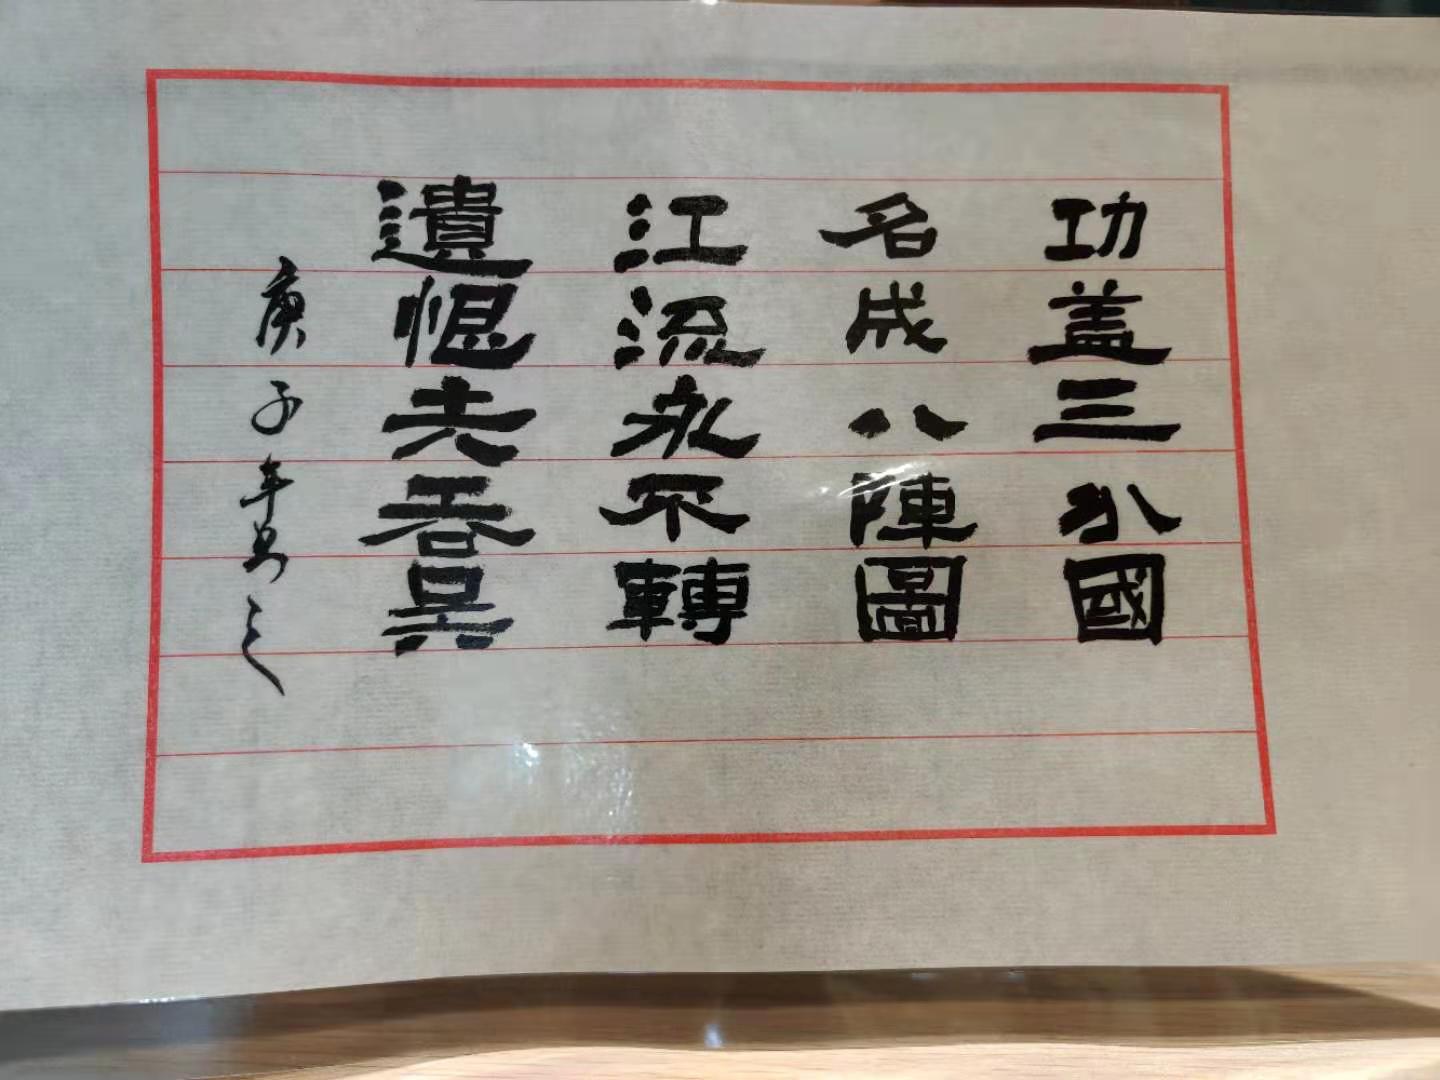 功盖三分國
名成八陣圖
江流永不轉
遺恨失吞吳
庚子年